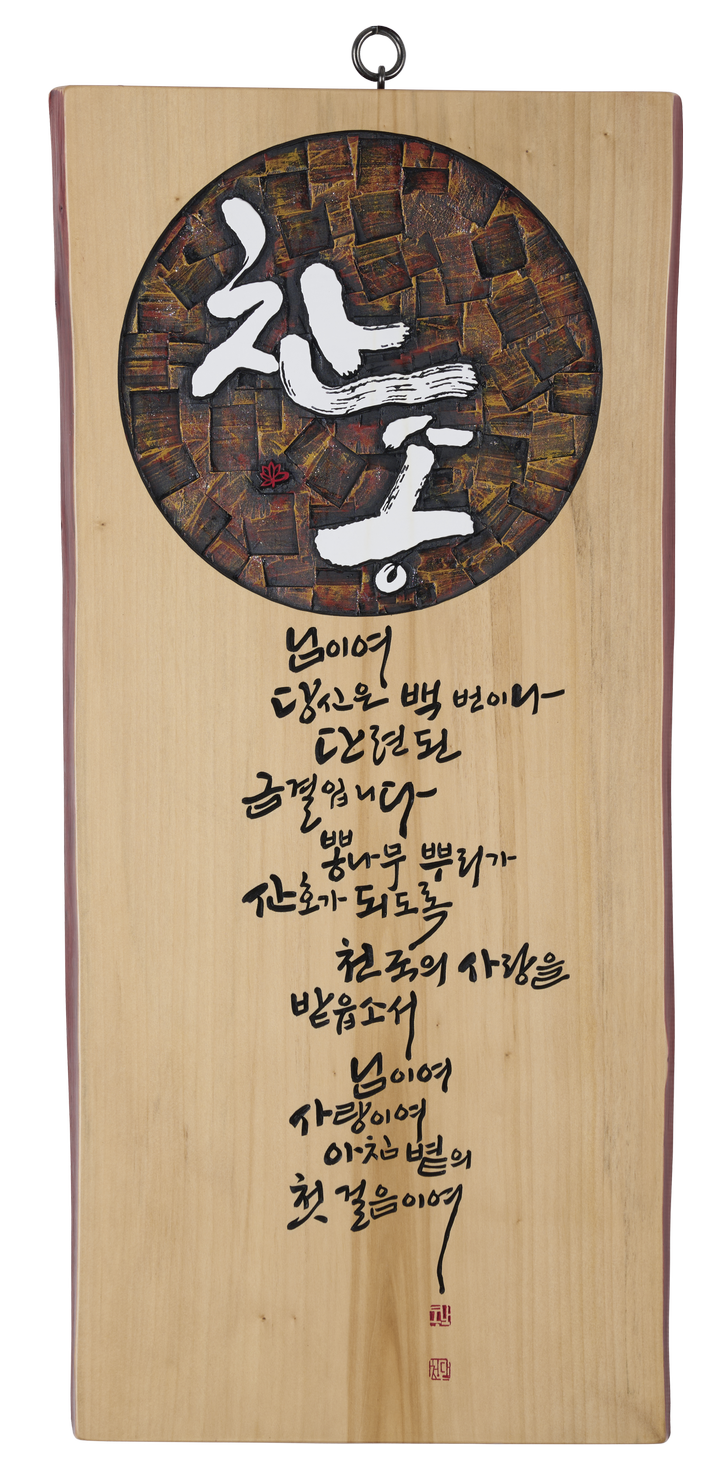 찬
송
님이여
당신은 백 번이나
단련된
금결입니다
뽕나무 뿌리가
산호가 되도록
천국의 사랑을
받읍소서
님이여
사랑이여
아침 볕의
첫 걸음이여